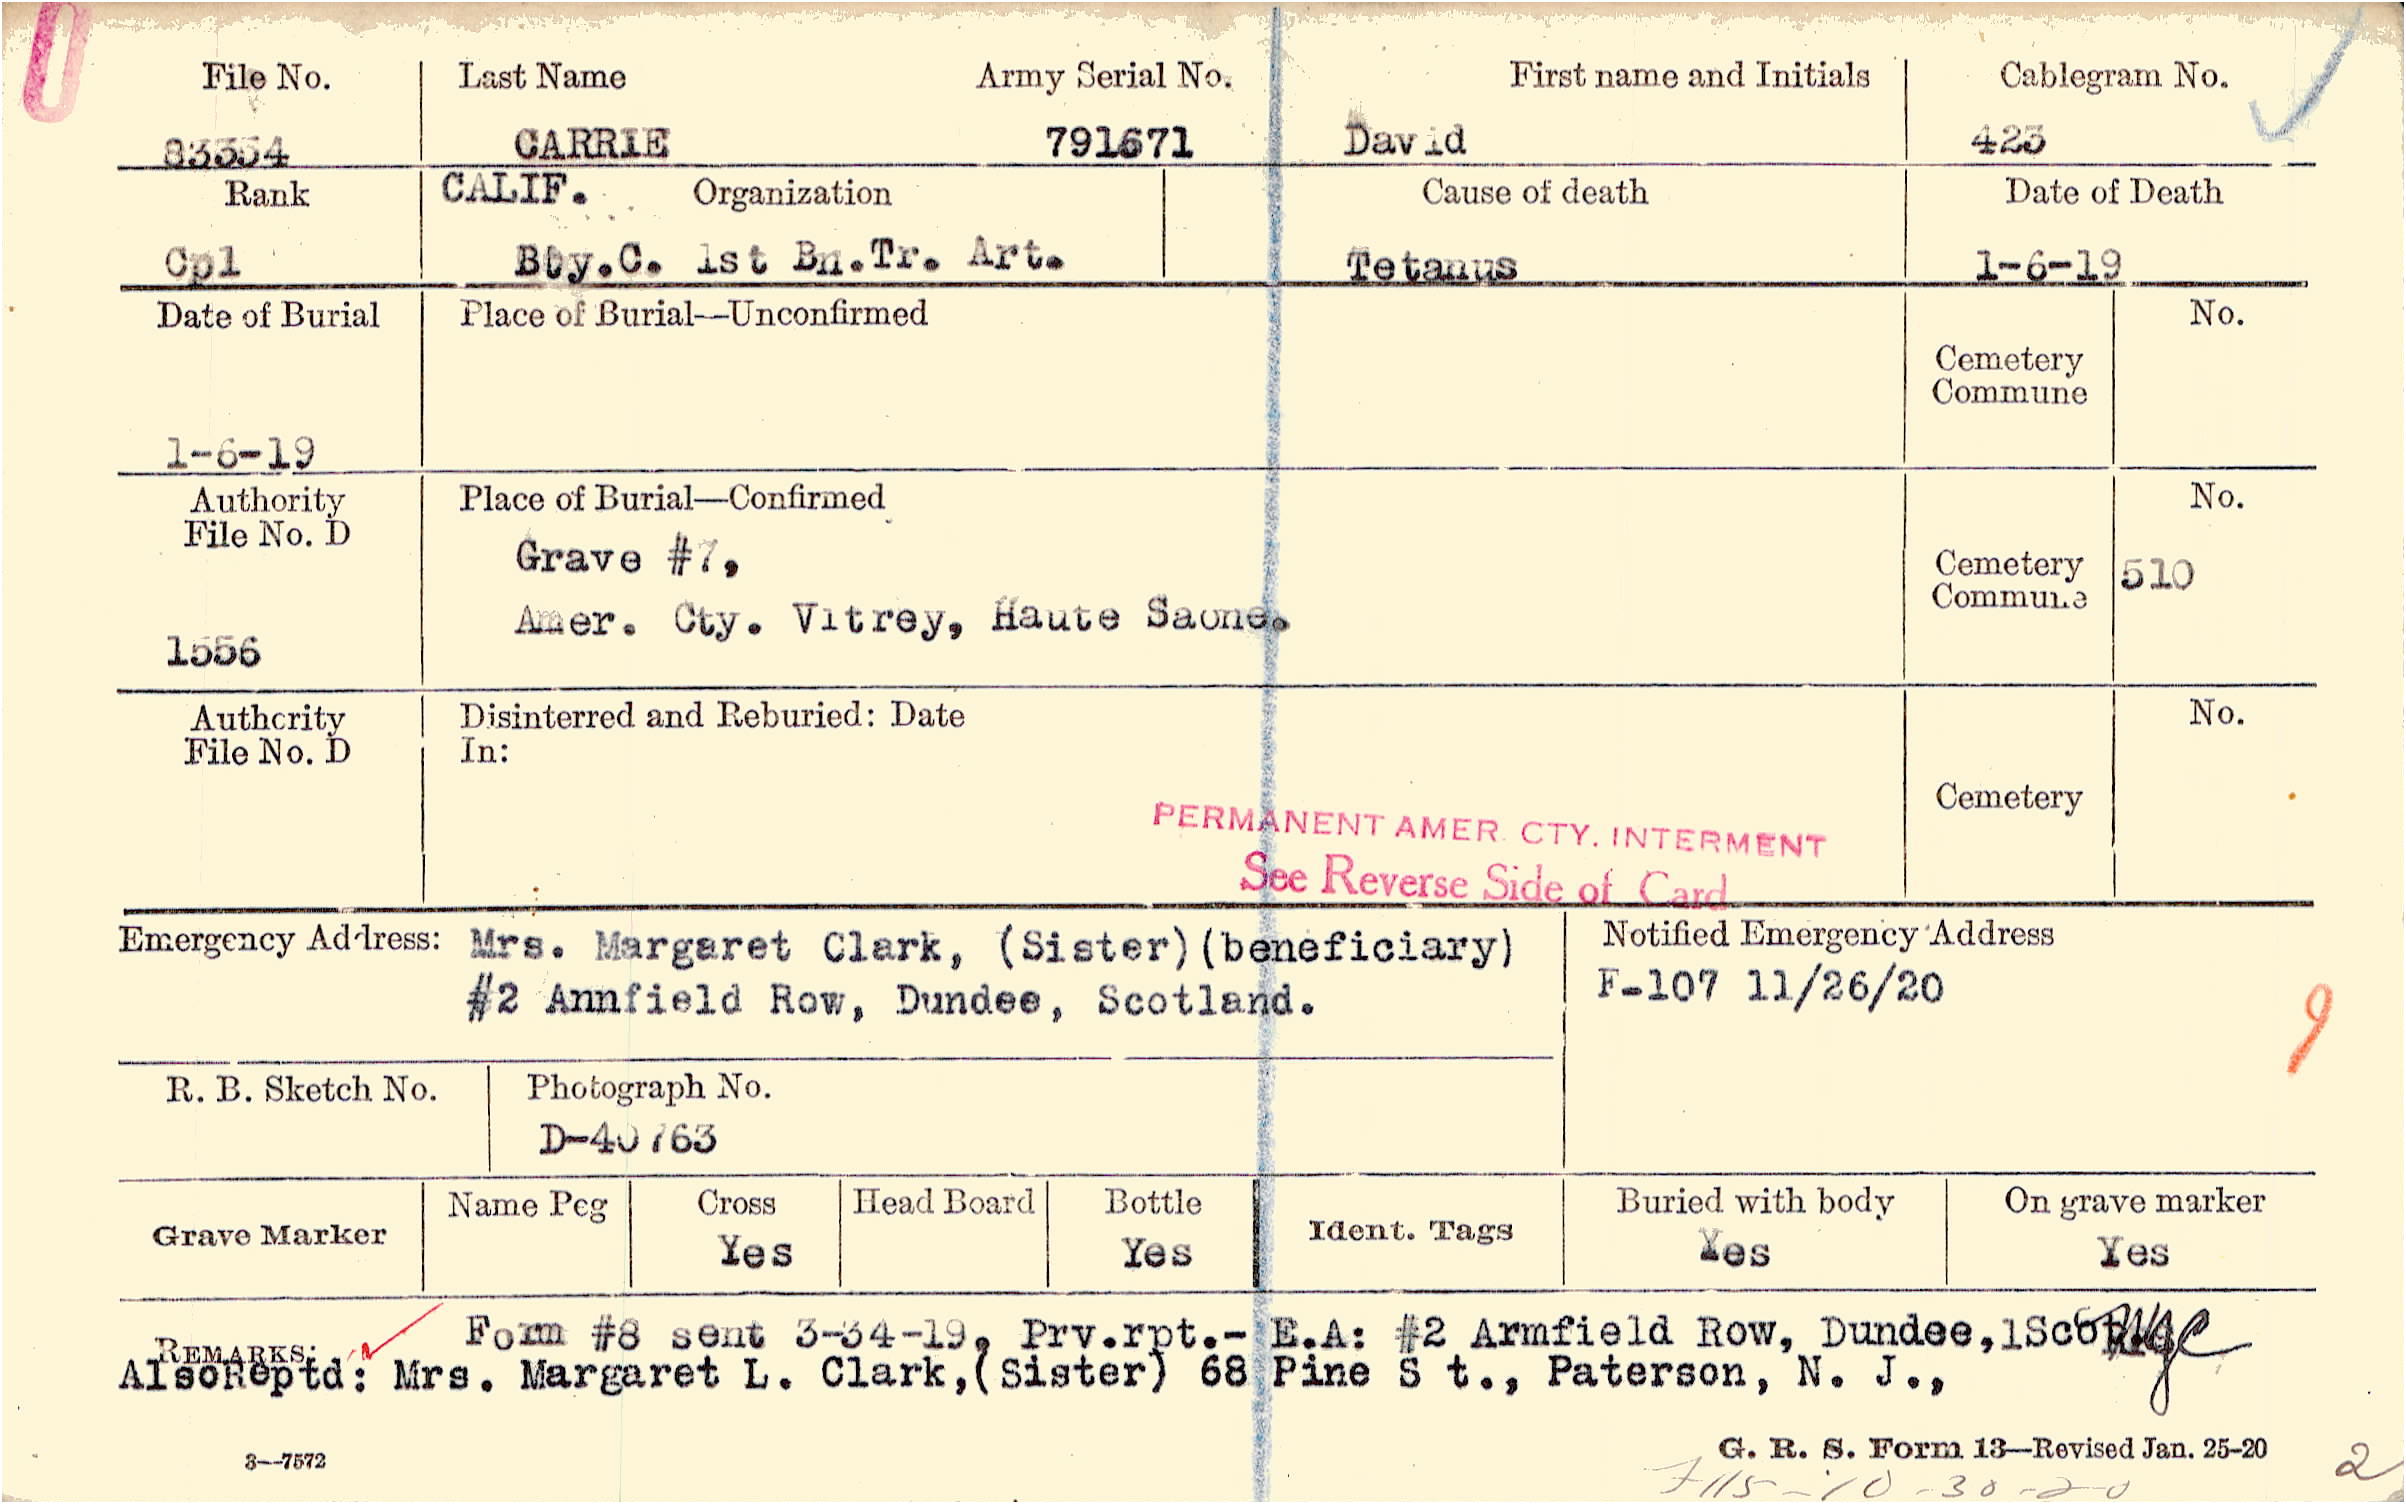 File No. Last Name Army Serial No. First name and Initials Cablegram No.
83354 CARRIE 791671 David 423
Rank CALIF. Organization Cause of death Date of Death
Cpl Bty.C. 1st Bn.Tr. Art. Tetanus 1-6-19
Date of Burial Place of Burial—Unconfirmed No.
Cemetery
Commune
1-6-19
Authority Place of Burial—Confirmed No.
File No. D
Grave #7,
Cemetery 510
Commune
Amer. Cty. Vitrey, Haute Saone.
1556
Authority Disinterred and Reburied: Date No.
File No. D In:
Cemetery
PERMANENT AMER. CTY. INTERMENT
See Reverse Side of Card
Emergency Address: Mrs. Margaret Clark, (Sister)(beneficiary) Notified Emergency Address
#2 Annfield Row, Dundee, Scotland. F-107 11/26/20
9
R. B. Sketch No. Photograph No.
D-40763
Grave Marker Name Peg Cross Head Board Bottle Ident. Tags Buried with body On grave marker
Yes Yes Yes Yes
REMARKS: Form #8 sent 3-34-19, Prv.rpt.- E.A: #2 Armfield Row, Dundee,
AlsoReptd: Mrs. Margaret L. Clark,(Sister) 68 Pine S t., Paterson, N. J.,
3—7572 G. R. S. Form 13—Revised Jan. 25-20 2
7115-10-30-20